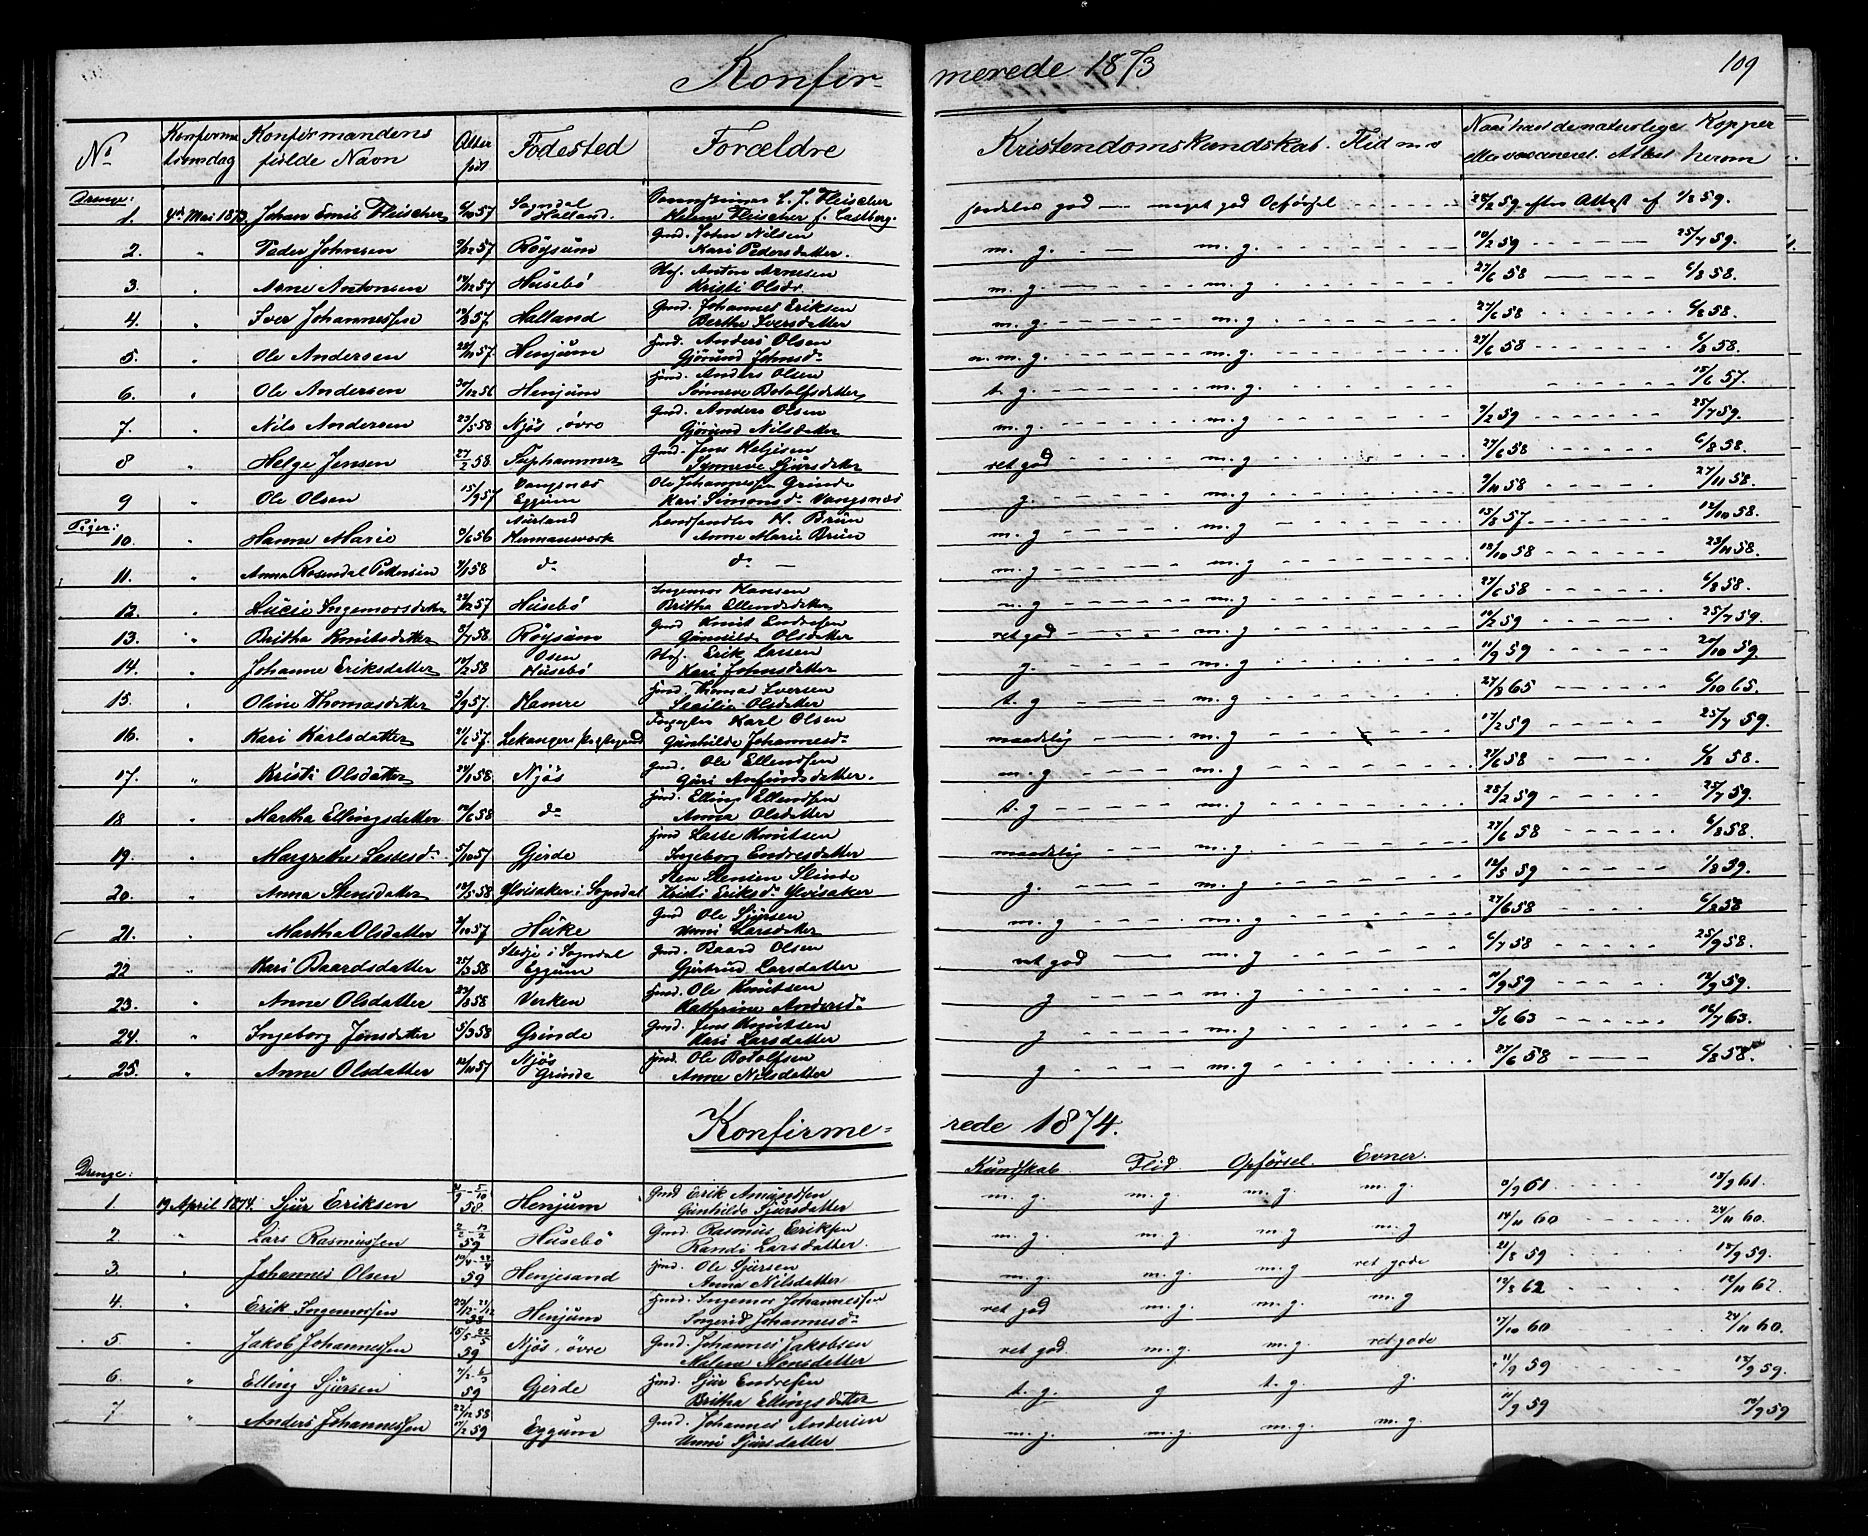 Konfir- merede 1873 109
No Konfirmationsdag Konfirmandens fulde Navn Alder født Fødested Forældre Kristendomskundskab. Flid m.v Naar havt de naturlige Kopper eller vaccineret. Attest herom
Drenge:
1. 4de Mai 1873. Johan Emil Fleischer 57 Sogndal Halland. L. J. Fleischer
Helene Fleischer f. Castberg. god — meget god Opførsel 59 efter Attest af 59.
2. " Peder Johnsen 57 Røysum Gmd. John Nilsen
Kari Pedersdatter. m. g. — m. g. 10/2 59 25/7 59.
3. " Arne Antonsen 57 Husebø Anton Arnesen
Kristi Olsdr m. g. m. g 27/6 58 6/8 58.
4. " Iver Johannessen 57. Halland Gmd. Johannes Eriksen
Berthe Iversdatter m. g. m. g. 27/6 58 6/8 58.
5. " Ole Andersen 57. Henjum Hmd. Anders Olsen
Gjørund Johnsd. m. g. m. g. 27/6 58 6/8 58.
6. " Ole Andersen 30/12 56 Henjum Hmd. Anders Olsen
Sønneve Botolfsdatter t. g. m. g. 15/6 57.
7. " Nils Andersen 23/5 58 Njøs, øvre Gmd. Anders Olsen
Gjørund Nilsdatter m. g. m. g. 59 25/7 59.
8 " Helge Jensen 27/2 58. Suphammer Gmd. Jens Heljesen
Synneve Sjursdatter ret god m. g. 27/6 58 6/8 58.
9 " Ole Olsen 15/9 57 Vangsnæs
Eggum Ole Johannessen Grinde
Kari Simonsd. Vangsnæs g. m. g. 58 27/11 58.
Piger:
10. " Hanne Marie 56 Aurland
Hermansverk Landhandler H. Brun
Anne Marie Brun m. g m. g 57. 12/10 58.
11. " Anna Rosendal Pedersen 58 do do — m. g m. g. 58 23/11 58.
12. " Lucie Ingemorsdatter 57 Husebø Ingemor Hansen
Britha Ellendsdatter m. g m. g. 27/6 58 6/8 58.
13. " Britha Knutsdatter 58. Røysum Gmd Knut Endresen
Gunhilde Olsdatter ret god m. g 10/2 59 25/7 59.
14. " Johanne Eriksdatter 58 Osen
Husebø Erik Lassen
Kari Johnsdatter g. m. g. 11/9 59 20/10 59.
15. " Oline Thomasdatter 57. Hamre Hmd. Thomas Iversen
Secilia Olsdatter t. g m. g 27/8 65 6/10 65.
16. " Kari Karlsdatter 57. Lekanger Karl Olsen
Gunhilde Johannesd. maadelig m. g 59 25/7 59.
17. " Kristi Olsdatter 58. Njøs Gmd. Ole Ellendsen
Guri Anfindsdatter. m. g m. g. 27/6 58 6/8 58.
18 " Martha Ellingsdatter 58 do Hmd. Elling Ellendsen
Anna Olsdatter t. g m. g. 59 25/7 59.
19. " Margrethe Lassesd. 5/10 57 Gjerde Hmd Lasse Knutsen
Ingeborg Endresdatter maadelig m. g. 27/6 58 6/8 58.
20. " Anna Stensdatter 58 Ylvisaker i Sogndal Sten Stensen Slinde
Kristi Eriksd. Ylvisaker g. m. g 12/5 59
21. " Martha Olsdatter 57. Huke Gmd Ole Sjursen
Unni Larsdatter m. g. m. g. 27/6 58 6/8 58
22 " Kari Baardsdatter 25/3 58 Stedje i Sogndal
Eggum Gmd. Baard Olsen
Gjertrud Larsdatter ret god m. g. 6/7 58 25/9 58.
23. " Anne Olsdatter 58 Verken Hmd. Ole Knutsen
Kathrine Andersd. g m. g. 11/9 59 12/9 59.
24. " Ingeborg Jensdatter 5/3 58 Grinde Gmd. Jens Knutsen
Kari Larsdatter g m. g. 63 63.
25. " Anne Olsdatter 57 Njøs
Grinde Hmd. Ole Botolfsen
Anne Nilsdatter g m. g 27/6 58 6/8 58.
Konfirme= rede 1874.
Drenge: Kundskab. Flid. Opførsel. Evner.
1. 19 April 1874. Sjur Eriksen 58 Henjum Gmd Erik Amundsen
Gunhilde Sjursdatter m. g. m. g m. g. m. g. 61 61.
2. " Lars Rasmussen 59 Husebø Gmd. Rasmus Eriksen
Randi Larsdatter. m. g. m. g. m. g m. g 14/11 60 24/11 60.
3. " Johannes Olsen 59 Henjesand Hmd. Ole Sjursen
Anna Nilsdatter m. g. m. g. m. g ret gode 21/8 59 59.
4. " Erik Ingemorsen 58 Henjum Hmd. Ingemor Johannessen
Ingerid Johannesd. ret god m. g. m. g. m. g 62 62.
5 " Jakob Johannessen 59 Njøs, øvre Gmd. Johannes Jakobsen
Helene Monsdatter ret god. m. g. m. g. ret gode 7/10 60 24/11 60.
6. " Elling Sjursen 59 Gjerde Hmd. Sjur Endresen
Britha Ellingsdatter t. g. g t. g. g. 11/9 59 12/9 59.
7 " Anders Johannessen 22/12 58
59 Eggum Gmd. Johannes Andersen
Unni Sjursdatter m. g. m. g. m. g. m. g. 11/9 59 59